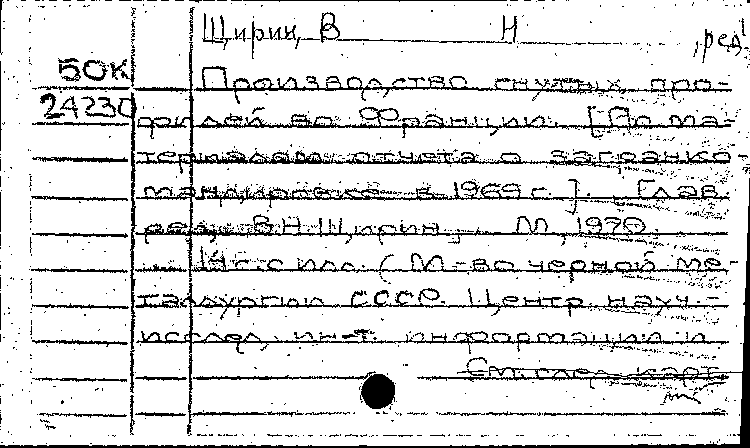 Щирин, В Н , ред.
50К Производство гнутых про-
24230 филей во Франции. [По ма-
териалам отчета о загранко-
мандировке в 1969 г.]. [Глав.
ред. В.Н. Щирин]. М., 1970.
14 с. с илл. (М-во черной ме-
таллургии СССР. Центр. науч.-
исслед. ин-т. информации и
См. след. карт.